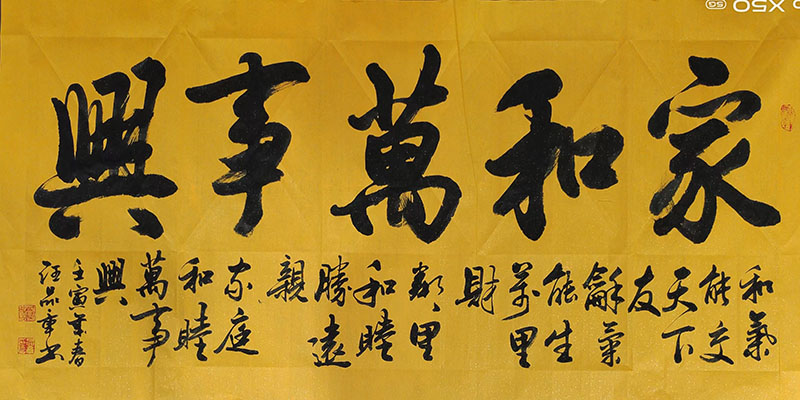 家和萬事興
和氣
能交
天下
友
龢氣
能生
萬里
財
鄰里
和睦
勝遠
親
家庭
和睦
萬事
興
壬寅年春
X50 5G